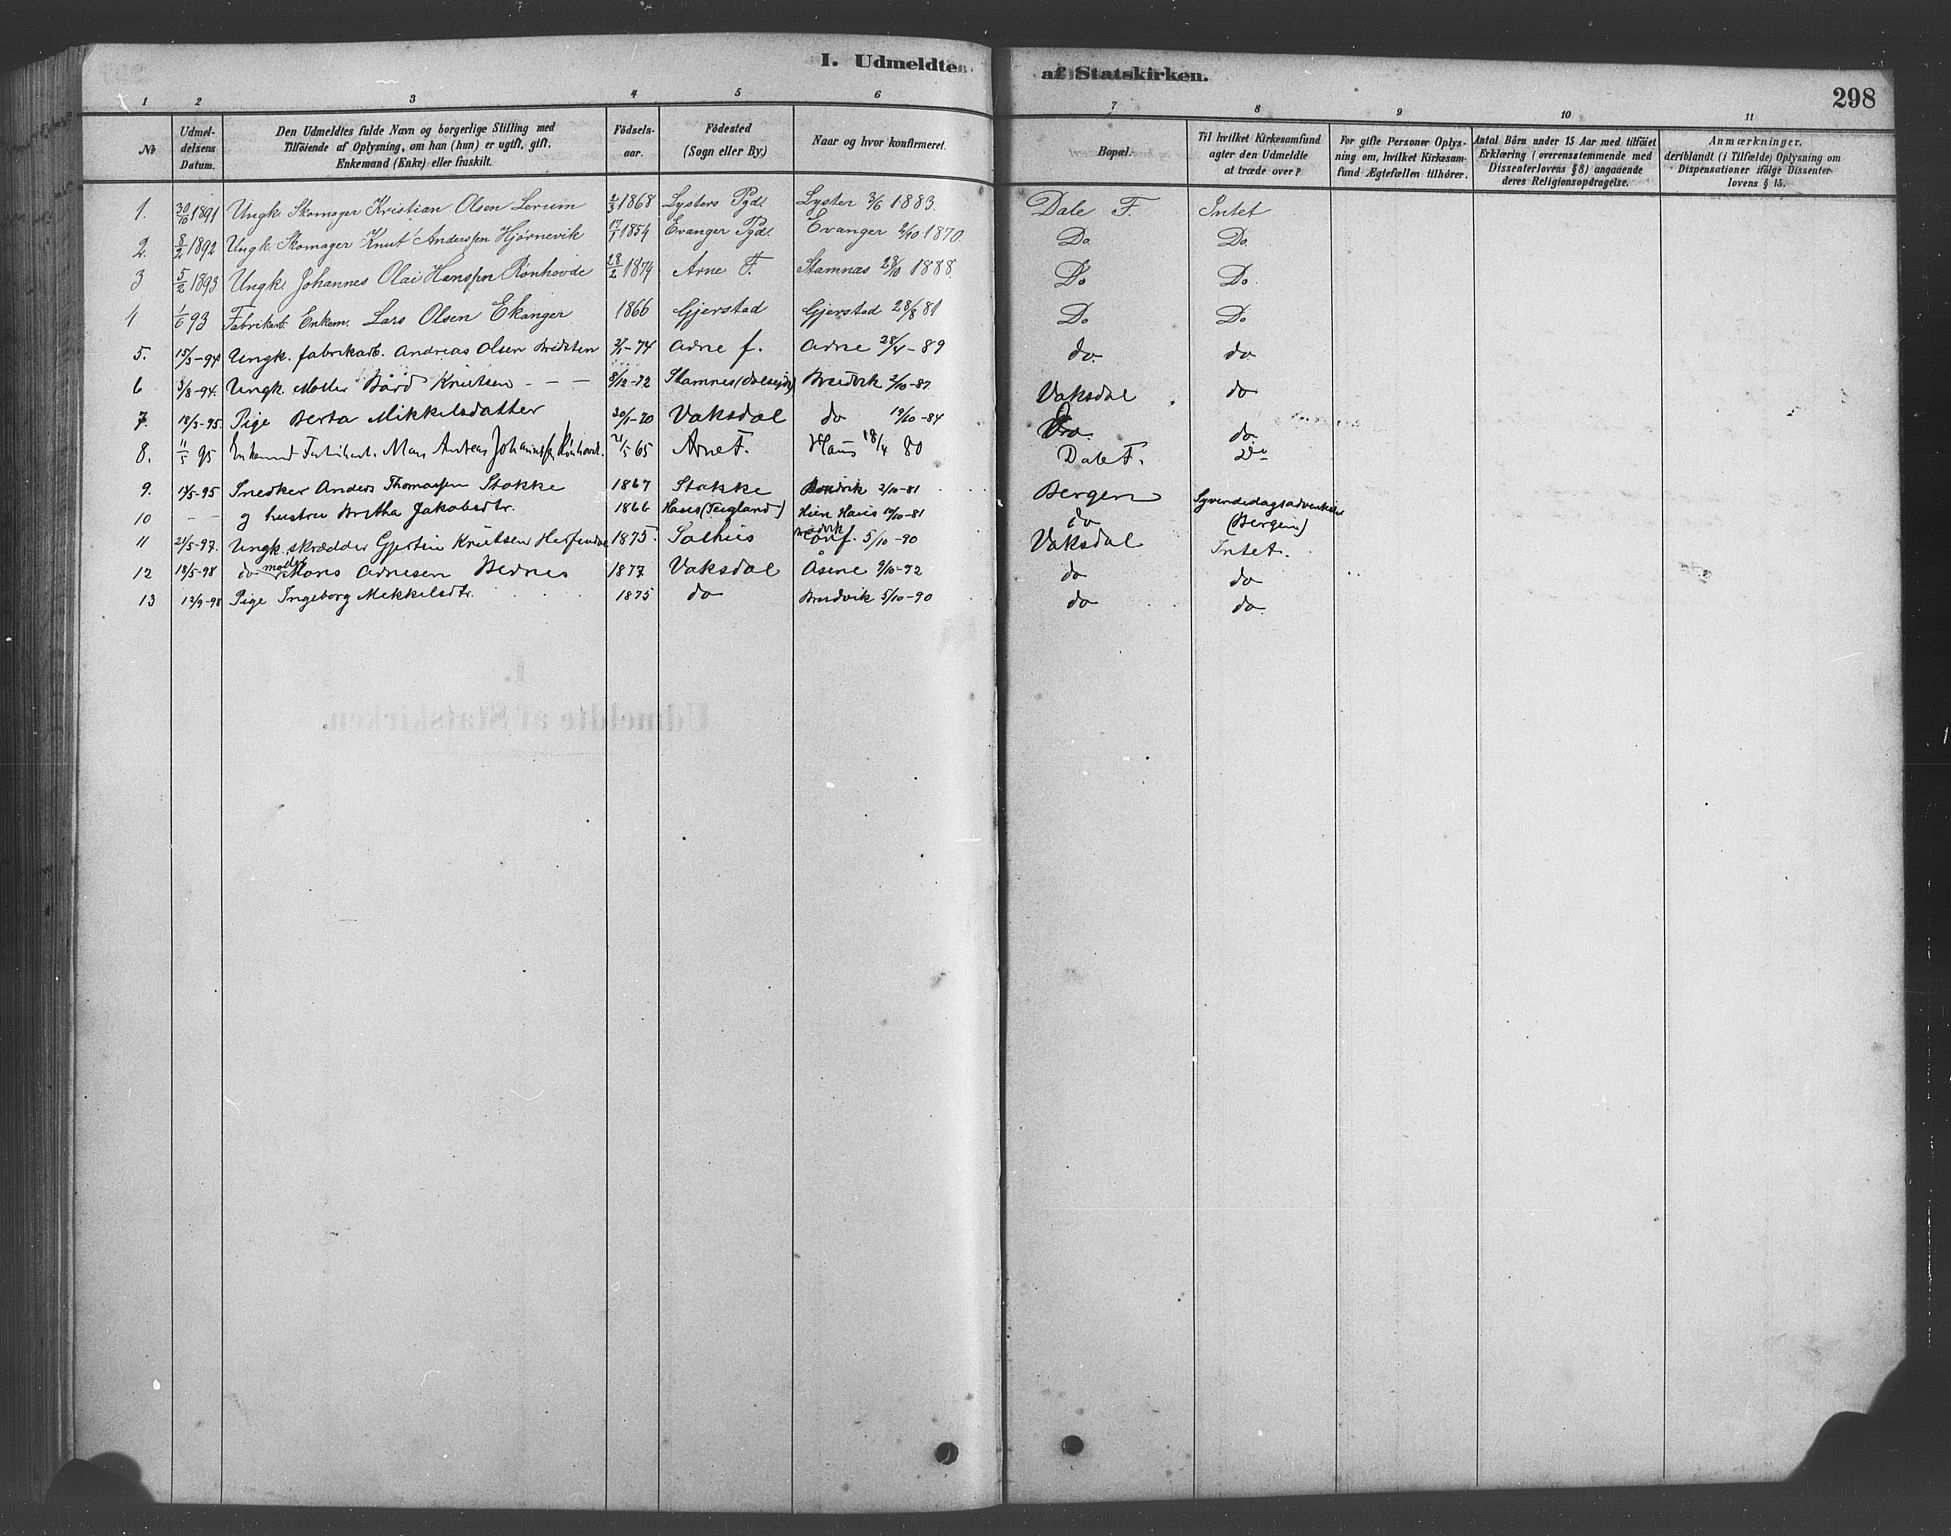 I. Udmeldte af Statskirken.
298
1 2 3 4 5 6 7 8 9 10 11
No
Udmeldelsens Datum.
Den Udmeldtes fulde Navn og borgerlige Stilling med
Tilföiende af Oplysning, om han (hun) er ugift, gift,
Enkemand (Enke) eller fraskilt.
Födselsaar.
Födested
(Sogn eller By.)
Naar og hvor konfirmeret.
Bopæl.
Til hvilket Kirkesamfund
agter den Udmeldte
at træde over?
For gifte Personer Oplysning om, hvilket Kirkesamfund Ægtefællen tilhörer.
Antal Börn under 15 Aar med tilföiet
Erklæring (overensstemmende med
Dissenterlovens § 8) angaaende
deres Religionsopdragelse.
Anmærkninger,
deriblandt (i Tilfælde) Oplysning om
Dispensationer ifölge Dissenterlovens § 15.
1. 30/10 1891 Ungk. Skomager Kristian Olsen Lerum 2/3 1868 Lysters Pgdl Lyster 3/6 1883. Dale F. Intet
2. 8/2 1892 Ungk. Skomager Knut Anderssen Hjørnevik 17/7 1854 Evanger Pgdl. Evanger 2/10 1870. Do Do
3 5/2 1893 Ungk. Johannes Olai Hanssen Rønhovde 28/2 1874 Arne F. Stamnæs 28/10 1888. Do Do.
4 1/6 93 Fabrikarb. Enkem. Lars Olsen Ekanger 1866 Gjerstad Gjerstad 28/8 81 Do Do
5. 15/3-94 Ungk. fabrikarb. Andreas Olsen 74 Arne f. Arne 28/4-89 do. do
6 5/8-94. Ungk. Møller Bård Knutsen - - - 8/12-72 Stamnes Bredvik 2/10-87 Vaksdal do
7. 18/3-95. Pige Berta Mikkelsdatter 20/1-70 Vaksdal do 19/10-84 do
8. 11/5 95 Enkemand Fabrikarb. Mons Andreas Johannessen Rønhovde. 21/5 65 Arne F. Haus 18/4 80 Dale F. Do
9. 14/5-95 Snedker Anders Thomassen Stokke 1867 Stokke Bredvik 2/10-81 Bergen Syvendedagsadventister
(Bergen)
10 - - og hustru Britha Jakobsdtr. 1866 Haus (Teigland) Haus 10/10-81 do
11 21/5-97. Ungk. skrædder Gjertin Knutsen 1875. Salhus 5/10-90 Vaksdal Intet.
12 18/5-98 do møller Mons Arnesen Bernes 1877 Vaksdal Åsene 9/10-92 do do
13 12/9-98 Pige Ingeborg Mikkelsdtr. 1875 do Bredvik 5/10-90 do do